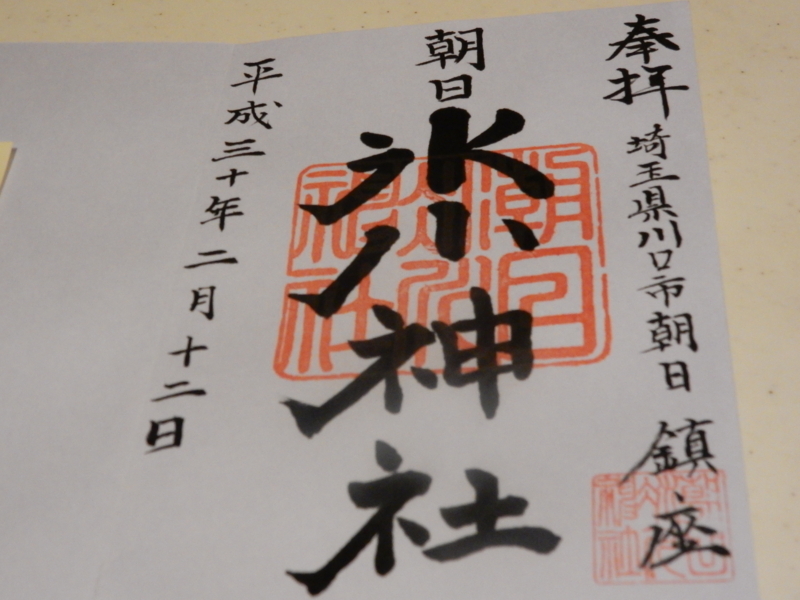 奉拝
埼玉県川口市朝日 鎮座
朝日
氷川神社
平成三十年二月十二日